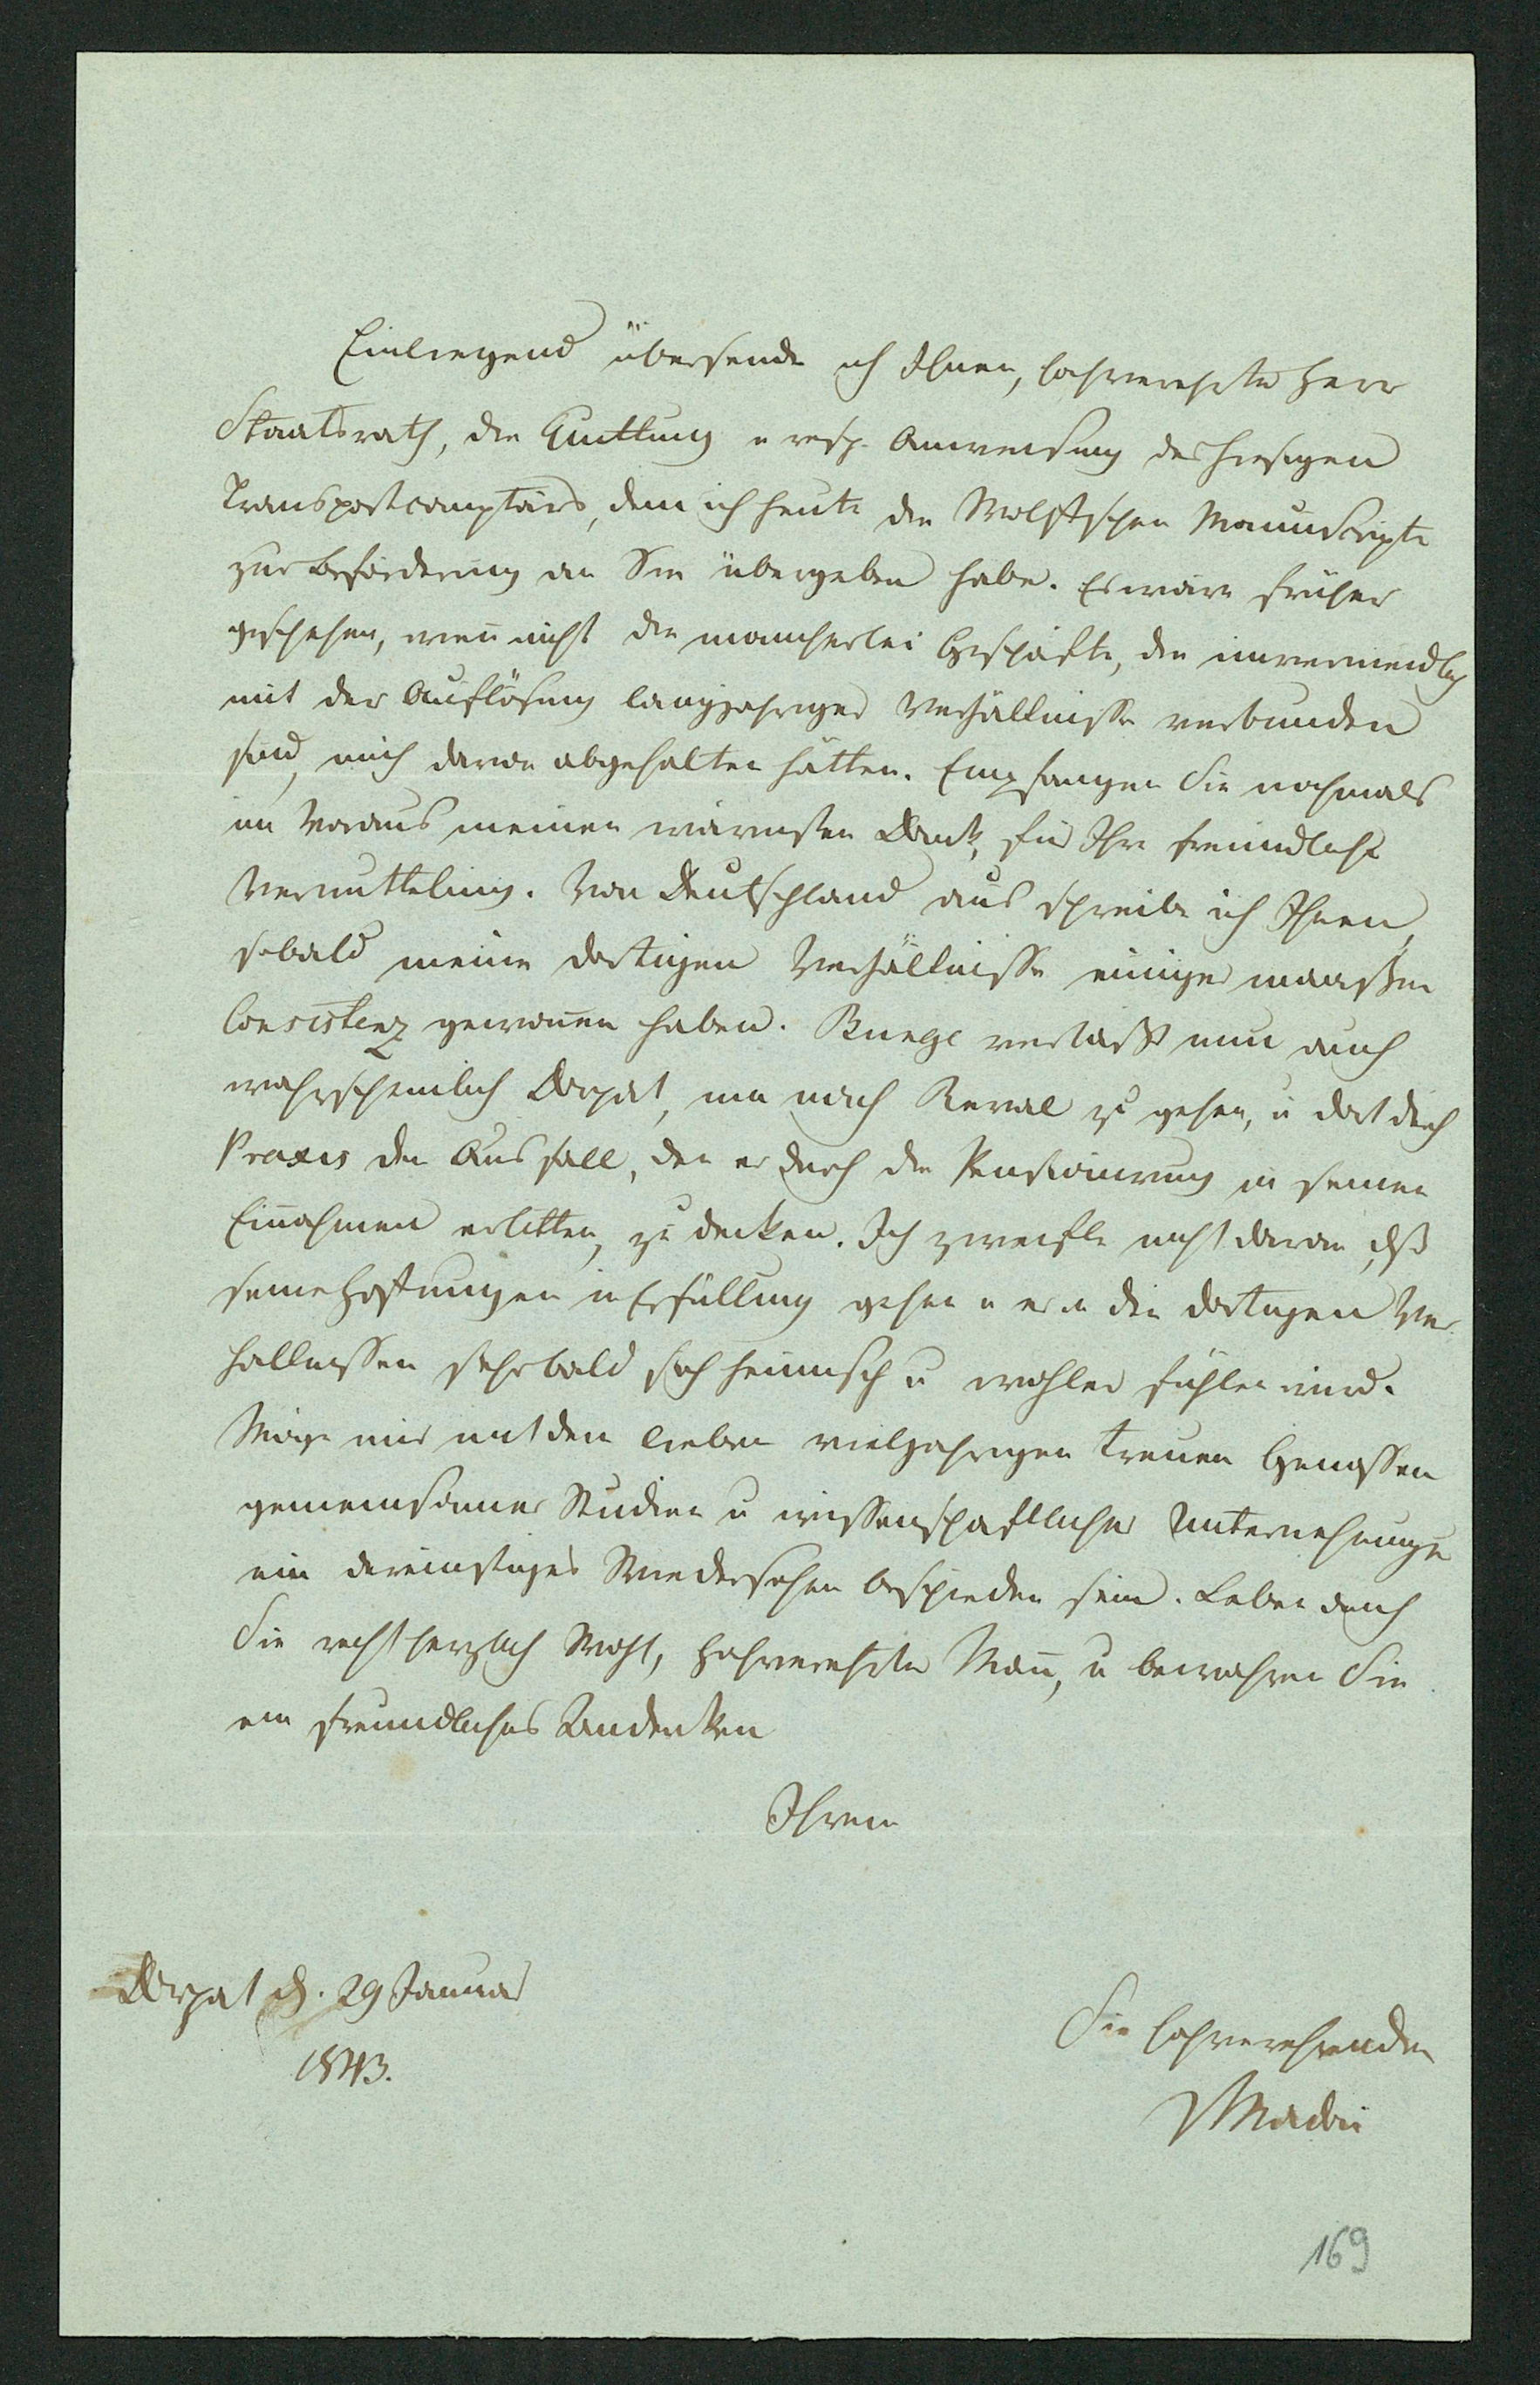 Einliegend übersende ich Ihnen, hochverehrter Herr
Staatsrath, die Quittung u resp. Anweisung des hiesigen
Transportcomptoirs, dem ich heute die Wolffschen Manuscripte
zur Beförderung an Sie übergeben habe. Es wäre früher
geschehen, wenn nicht die mancherlei Geschäfte, die unvermeidlich
mit der Auflösung langjähriger Verhältnisse verbunden
sind, mich davon abgehalten hätten. Empfangen Sie nochmals
im Voraus meinen wärmsten Dank, für Ihre freundliche
Vermittelung. Von Deutschland aus schreibe ich Ihnen,
sobald meine dortigen Verhältnisse einiger maaßen
Consistenz gewonnen haben. Bunge verläßt nun auch
wahrscheinlich Dorpat, um nach Reval zu gehen, u dort durch
Praxis den Ausfall, den er durch die Pensionirung in seinen
Einnahmen erlitten, zu decken. Ich zweifle nicht daran, dß
seine Hoffnungen in Erfüllung gehen u er in den dortigen Ver¬
hältnissen sehr bald sich heimisch u wohler fühlen wird.
Möge mir mit dem lieben vieljährigen treuen Genossen
gemeinsamer Studien u wissenschaftlicher Unternehmungen
ein dereinstiges Wiedersehen beschieden sein. Leben auch
Sie recht herzlich Wohl, hochverehrter Mann, u bewahren Sie
ein freundliches Andenken
Ihrem
Dorpat d. 29 Januar
1843.
Sie hochverehrenden
Madai
169